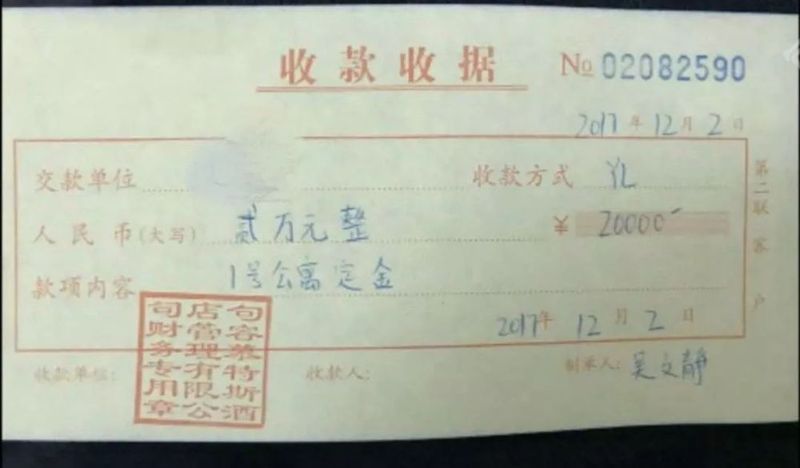 收款收据 № 02082590
2017年12月2日
交款单位 收款方式 YL
人民币(大写) 贰万元整 ¥ 20000-
款项内容 1号公寓定金
2017年12月2日
收款单位: 收款人: 制单人: 吴文静
第二联 客户
句容莱特斯酒
店管理有限公
司财务专用章